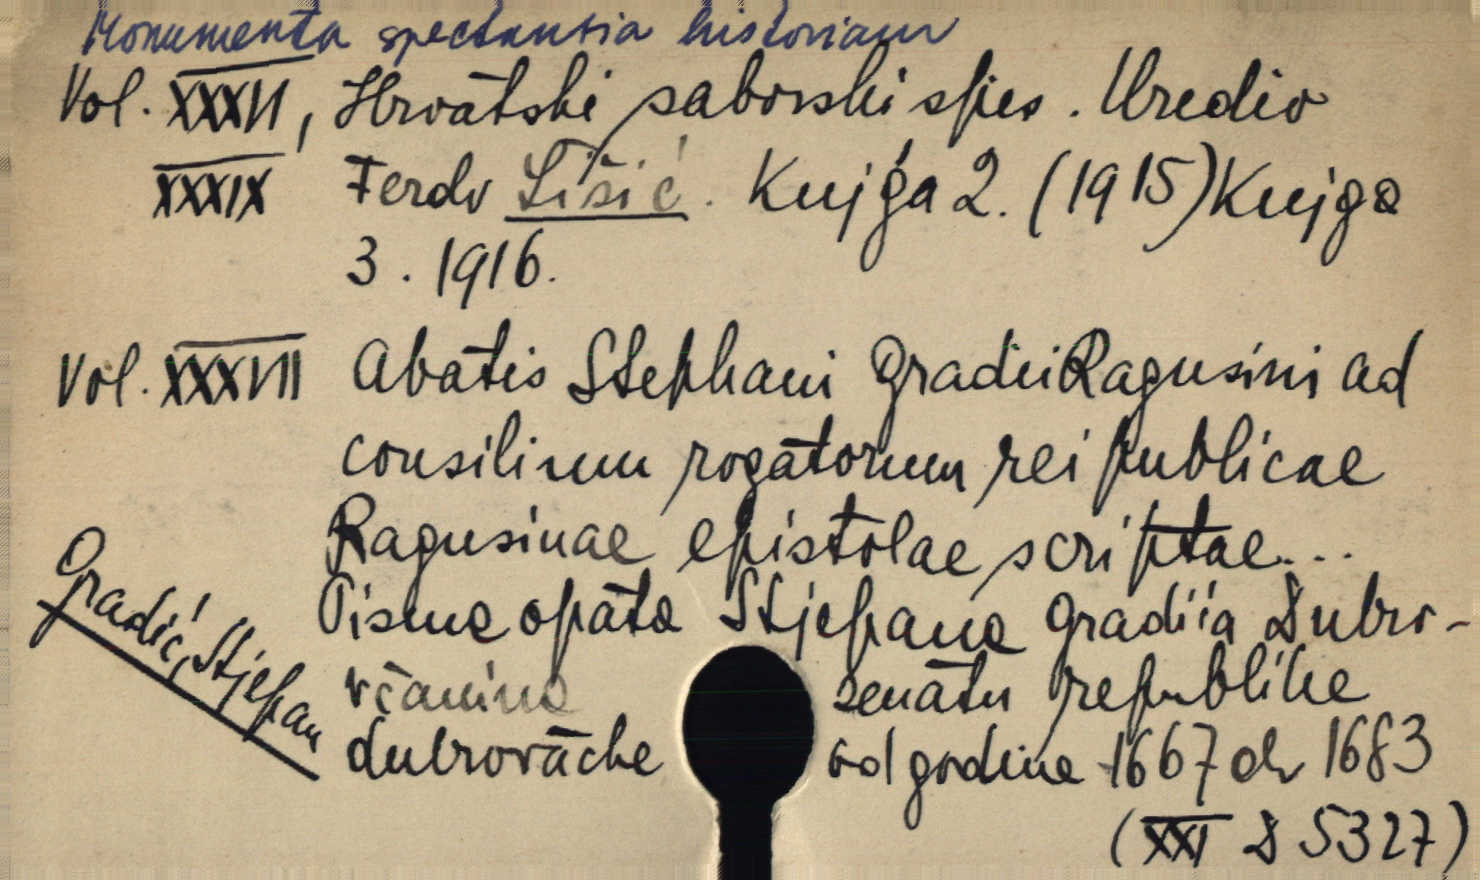 Monumenta spectantia historiam
Vol. XXXVI, Hrvatski saborski spis. Uredio
XXXIX Ferdo Šišić. Knjiga 2. (1915) Knjiga
3. 1916.
Vol. XXXVII Abatis Stephani Gradii Ragusini ad
consilium rogatorum rei publicae
Ragusinae epistolae scriptae...
Gradić, Stjepan
Pisma opata Stjepana Gradića Dubro-
včanina senatu republike
dubrovačke od godine 1667 do 1683
(XXI D 5327)